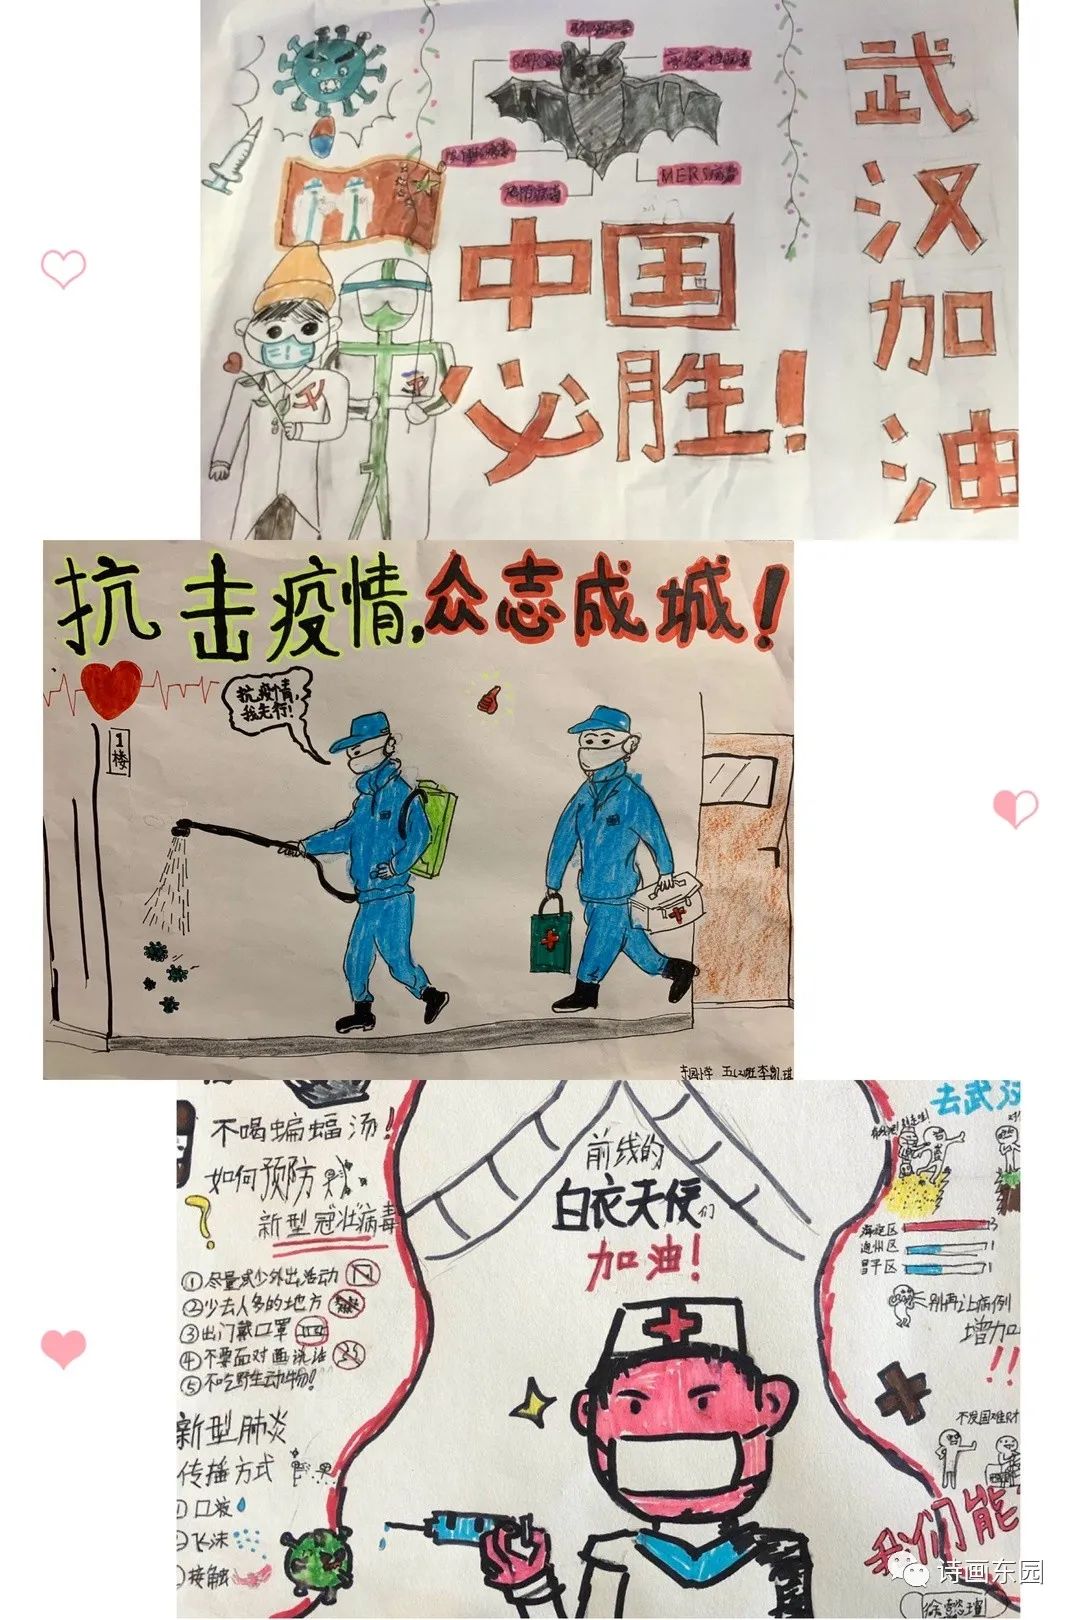 武汉加油
SARS病毒
MERS病毒
中国
必胜！
抗击疫情，众志成城！
抗疫情，
我先行！
1楼
五(2)班李凯琪
不喝蝙蝠汤！
如何预防
新型冠状病毒
①尽量减少外出活动
②少去人多的地方
③出门戴口罩
④不要面对面说话
⑤不吃野生动物！
新型肺炎
传播方式
①口液
②飞沫
③接触
前线的
白衣天使们
加油！
去武汉
海淀区 3
通州区 1
昌平区 1
别再让病例
增加
!!
不发国难财
我们能
诗画东园